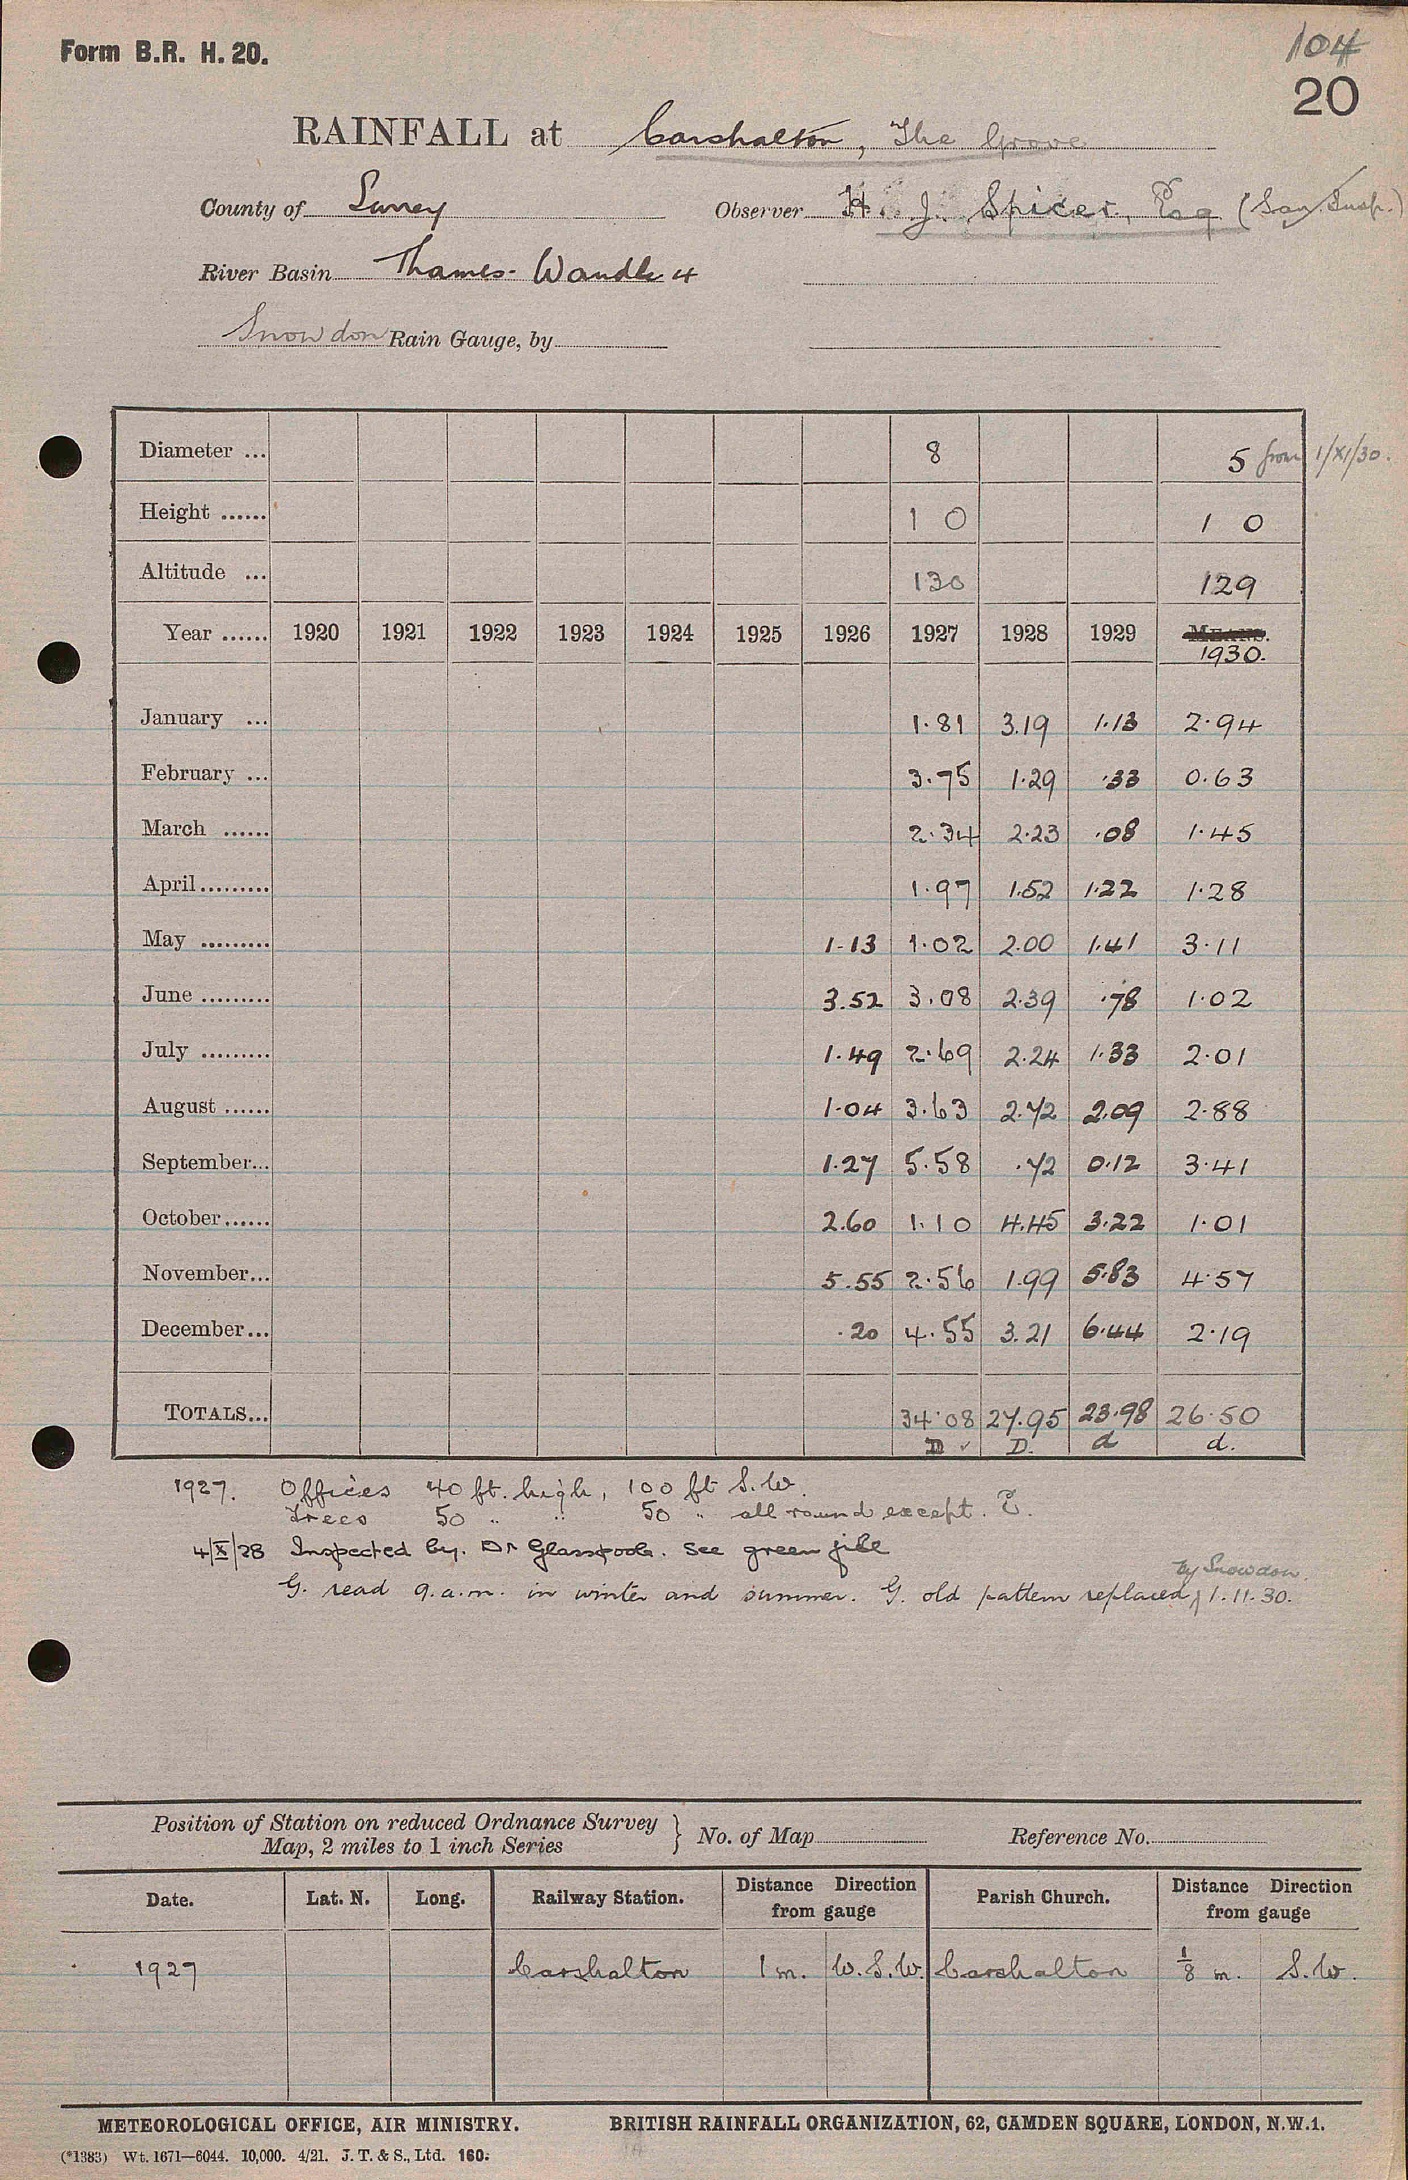 Form B.R. H. 20.
104
20
RAINFALL at Carshalton, The Grove
County of Surrey Observer H. J. Spicer, Esq (San. Insp.)
River Basin Thames - Wandle 4
Snowdon Rain Gauge, by
Diameter ... 8 5 from 1/XI/30.
Height ...... 1 0 1 0
Altitude ... 130 129
Year ...... 1920 1921 1922 1923 1924 1925 1926 1927 1928 1929 MEANS.
1930.
January ... 1.81 3.19 1.13 2.94
February ... 3.75 1.29 .33 0.63
March ...... 2.34 2.23 .08 1.45
April......... 1.97 1.52 1.22 1.28
May ......... 1.13 1.02 2.00 1.41 3.11
June ......... 3.52 3.08 2.39 .78 1.02
July ......... 1.49 2.69 2.24 1.33 2.01
August ...... 1.04 3.63 2.72 2.09 2.88
September... 1.27 5.58 .72 0.12 3.41
October...... 2.60 1.10 4.45 3.22 1.01
November... 5.55 2.56 1.99 5.83 4.57
December... .20 4.55 3.21 6.44 2.19
TOTALS... 34.08 27.95 23.98 26.50
D ✓ D. d d.
1927. Offices 40 ft. high, 100 ft S.W.
Trees 50 " " 50 " all round except. E.
4/X/28 Inspected by. Dr Glasspoole. See green file
by Snowdon.
G. read 9.a.m. in winter and summer. G. old pattern replaced 1.11.30.
Position of Station on reduced Ordnance Survey
Map, 2 miles to 1 inch Series } No. of Map Reference No.
Date. Lat. N. Long. Railway Station. Distance Direction from gauge Parish Church. Distance Direction from gauge
1927 Carshalton 1 m. W.S.W. Carshalton 1/8 m. S.W.
METEOROLOGICAL OFFICE, AIR MINISTRY. BRITISH RAINFALL ORGANIZATION, 62, CAMDEN SQUARE, LONDON, N.W.1.
(*1383) Wt. 1671—6044. 10,000. 4/21. J. T. & S., Ltd. 160.